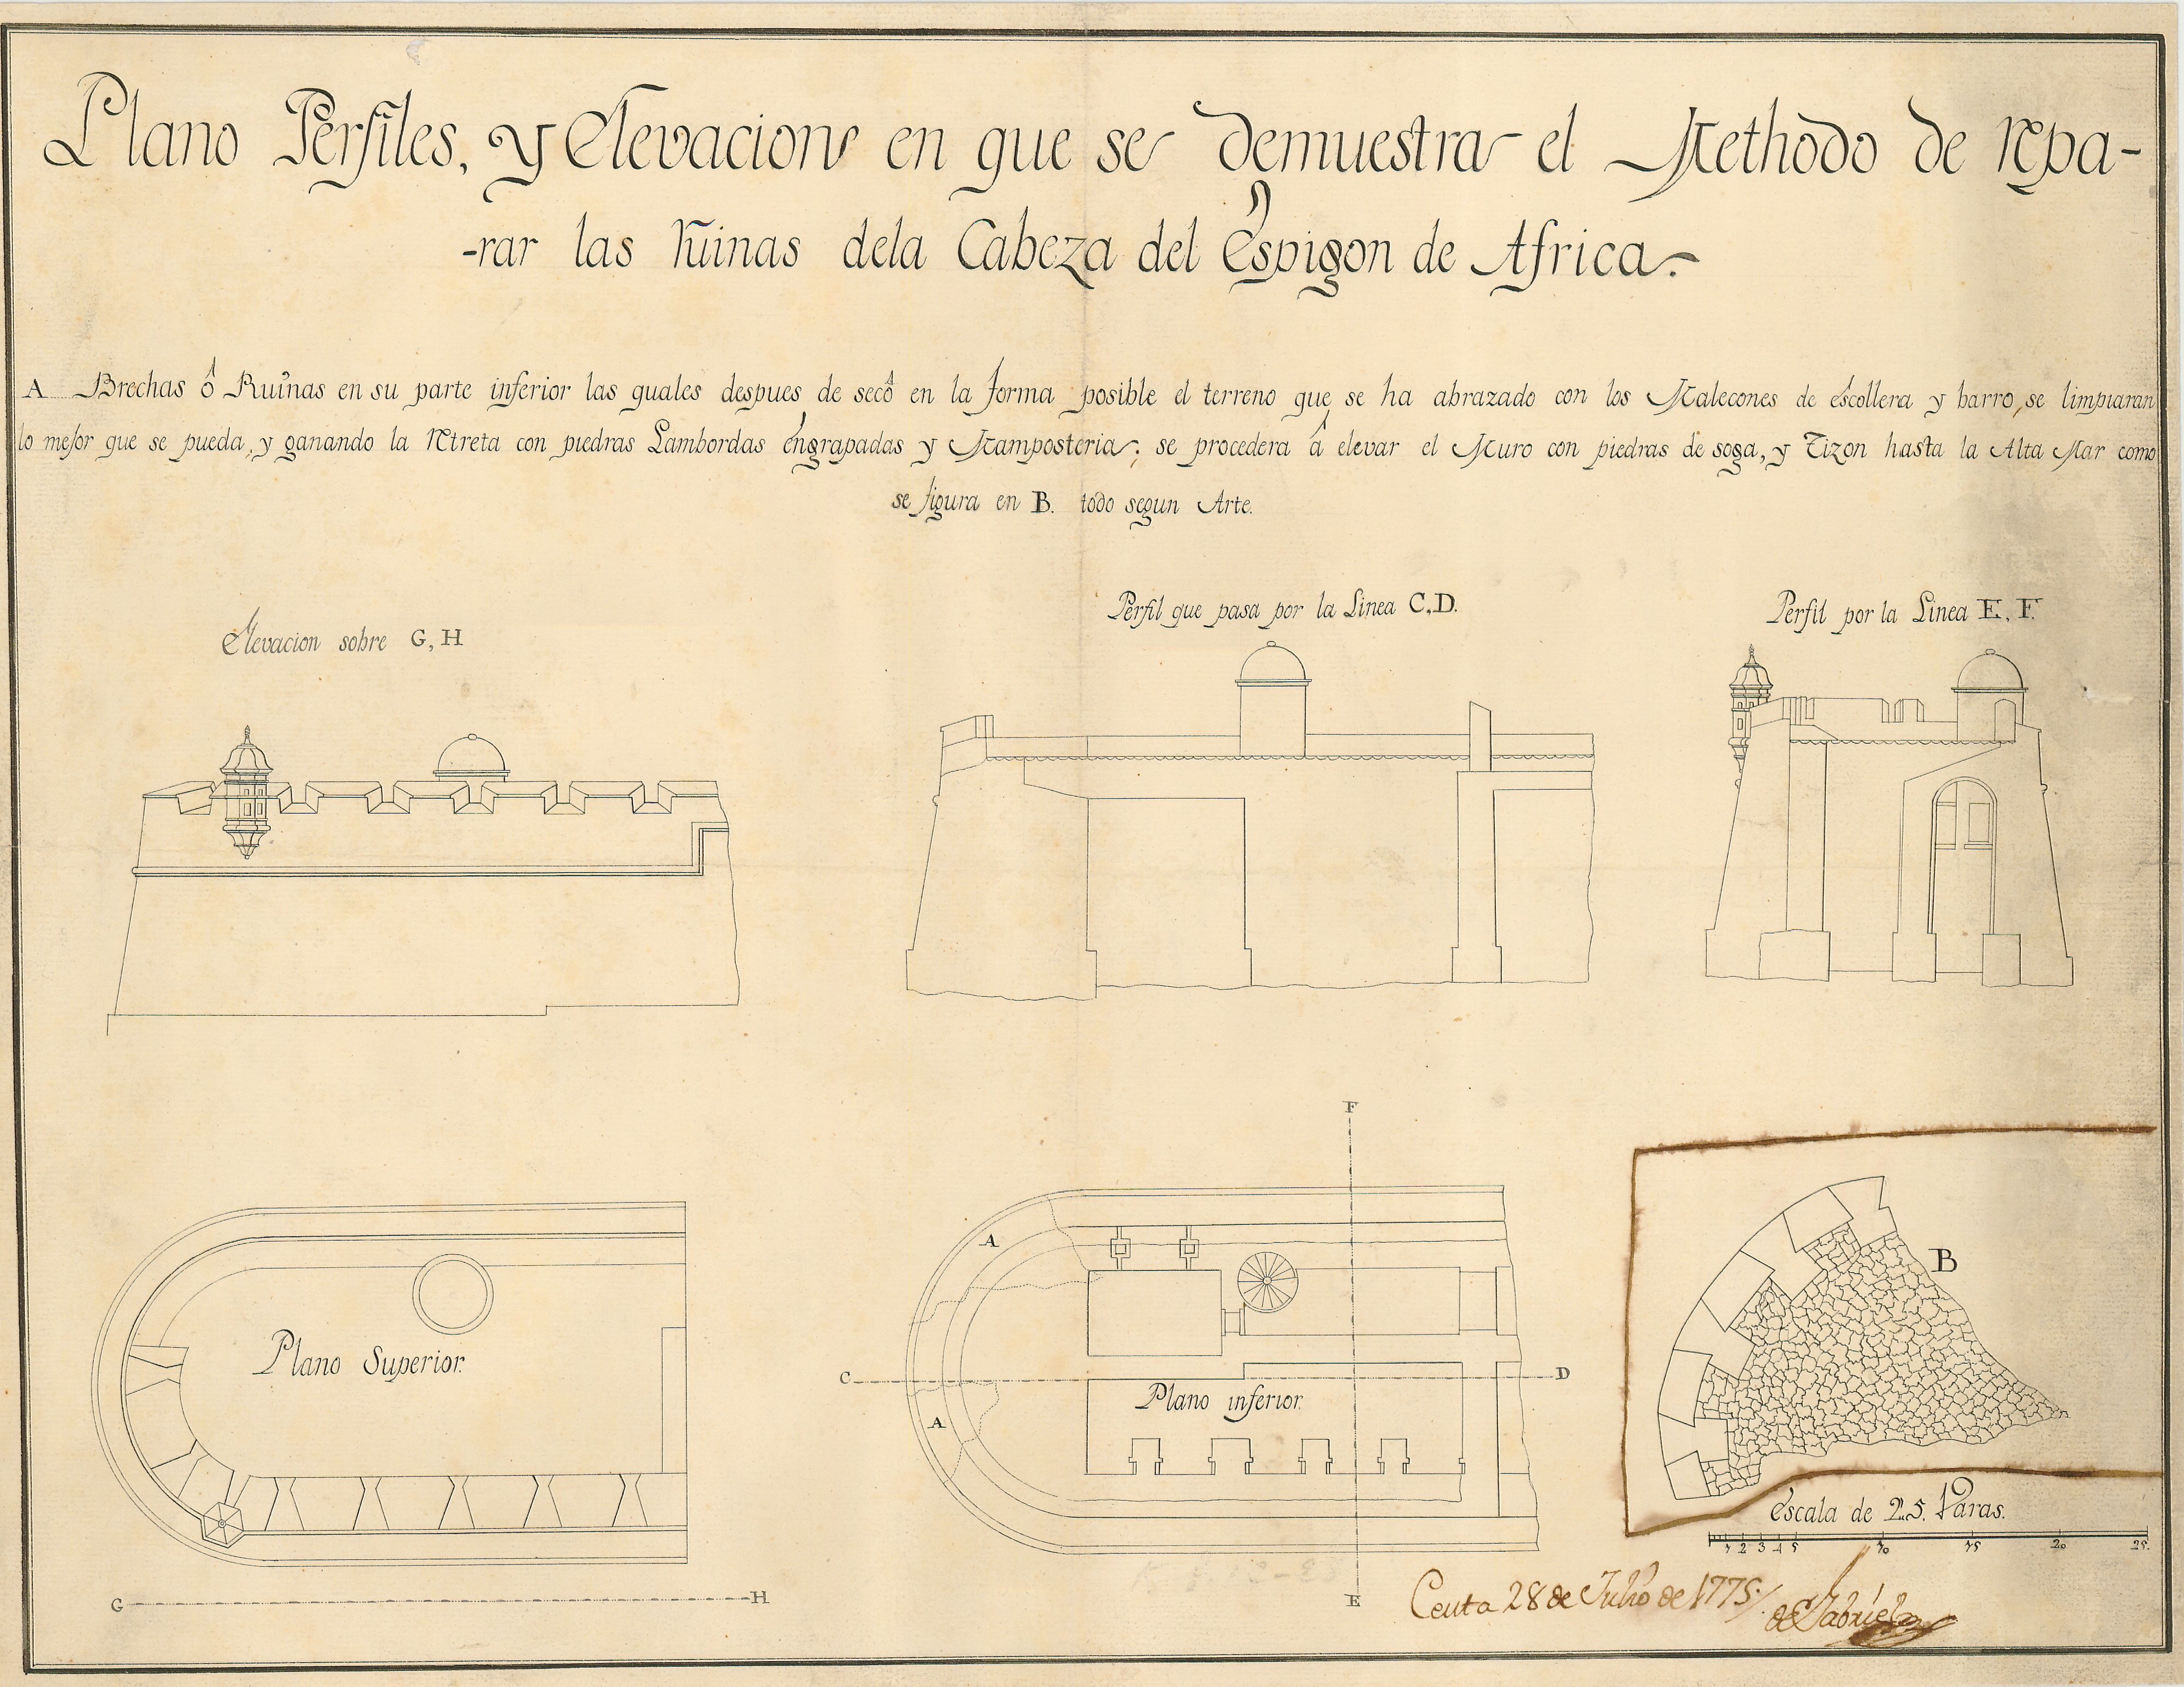 Plano Perfiles, y Elevacion en que se demuestra el Methodo de Repa-
-rar las Ruinas dela Cabeza del Espigon de Africa.
A Brechas ô Ruinas en su parte inferior las quales despues de secô en la forma posible el terreno que se ha abrazado con los Malecones de escollera y barro, se limpiaran
lo mejor que se pueda, y ganando la Retreta con piedras Lambordas engrapadas y Mamposteria; se procedera â elevar el Muro con piedras de soga, y Tizon hasta la Alta Mar como
se figura en B. todo segun Arte.
Elevacion sobre G, H
Perfil que pasa por la Linea C, D.
Perfil por la Linea E, F.
Plano Superior.
G
H
F
A
C
D
Plano inferior.
A
E
B
Escala de 25. Varas.
1 2 3 4 5 10 15 20 25.
Ceuta 28 de Julio de 1775